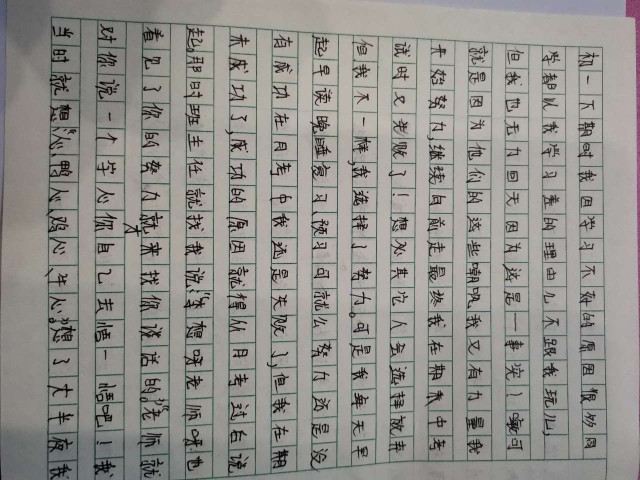 初一下期时我因学习不好的原因很多同
学都以我学习差的理由儿不跟我玩儿,
但我也无力回天因为这是一事实!可
就是因为他们的这些嘲讽我又有力量我
开始努力,继续向前走最终我在期末中考
试时又失败了!想必其它人会选择放弃
但我不一样,我选择了努力。可是我每天早
起早读晚睡复习、预习可就么努力还是没
有成功在月考中我还是失败了,但我在期
末成功了,成功的原因就得从月考过后说
起,那时班主任就找我说:"李想呀老师呀也
看见了你的努力才就来找你谈话的。"老师就
对你说一个字心你自己去悟一悟吧!我
当时就想"心、鸭心、鸡心、牛心。"想了大半夜我